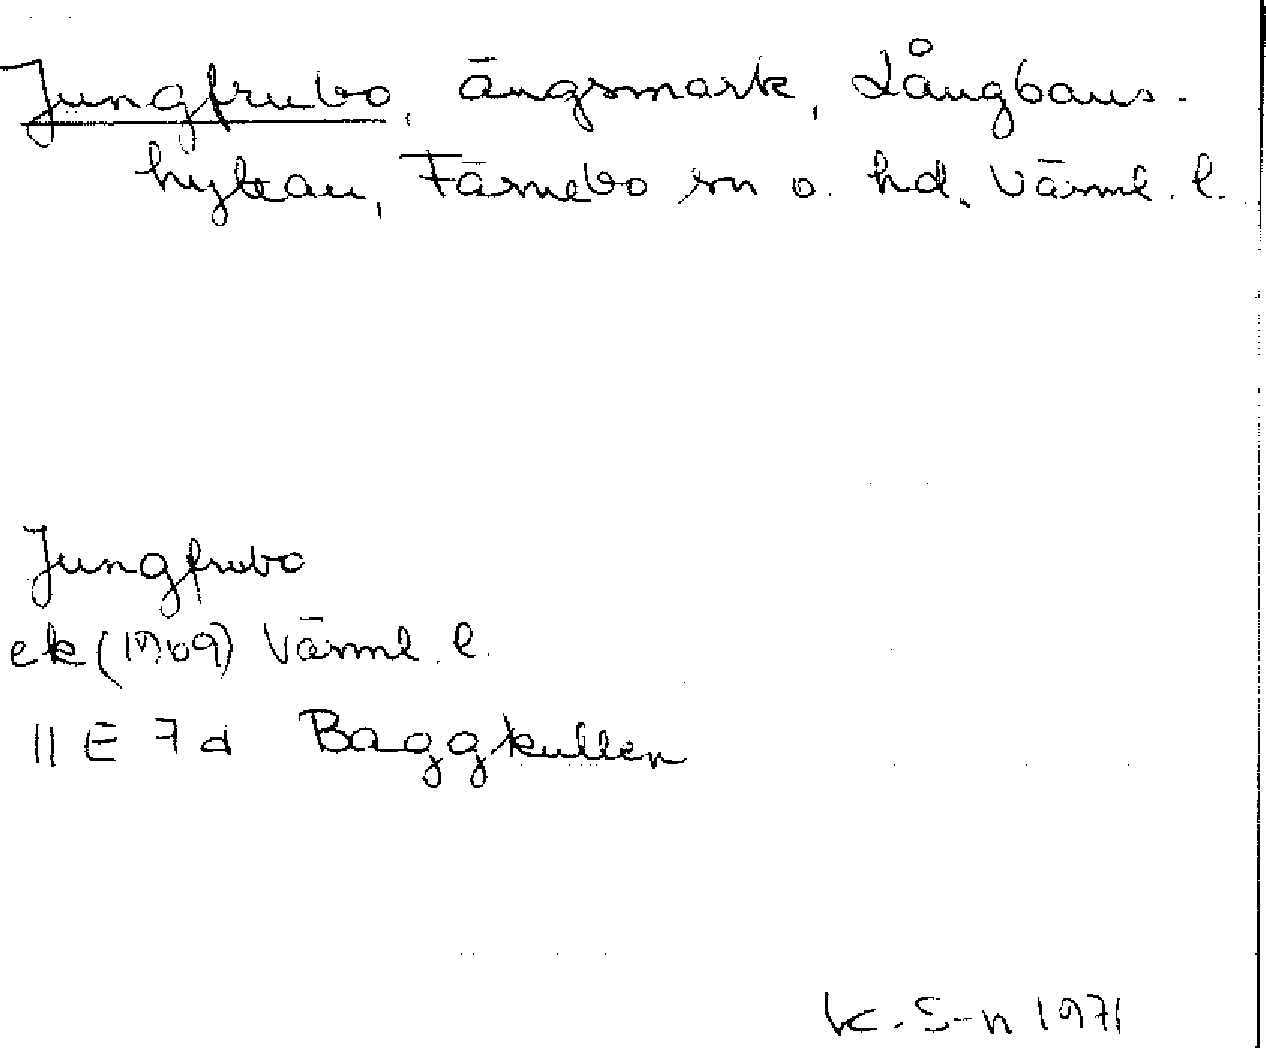 Jungfrubo, ängsmark, Långbans-
hyttan, Färnebo sn o. hd. Värml. l.
Jungfrubo
ek (1969) Värml. l.
11 E 7 d Baggkullen
K. S-n 1971